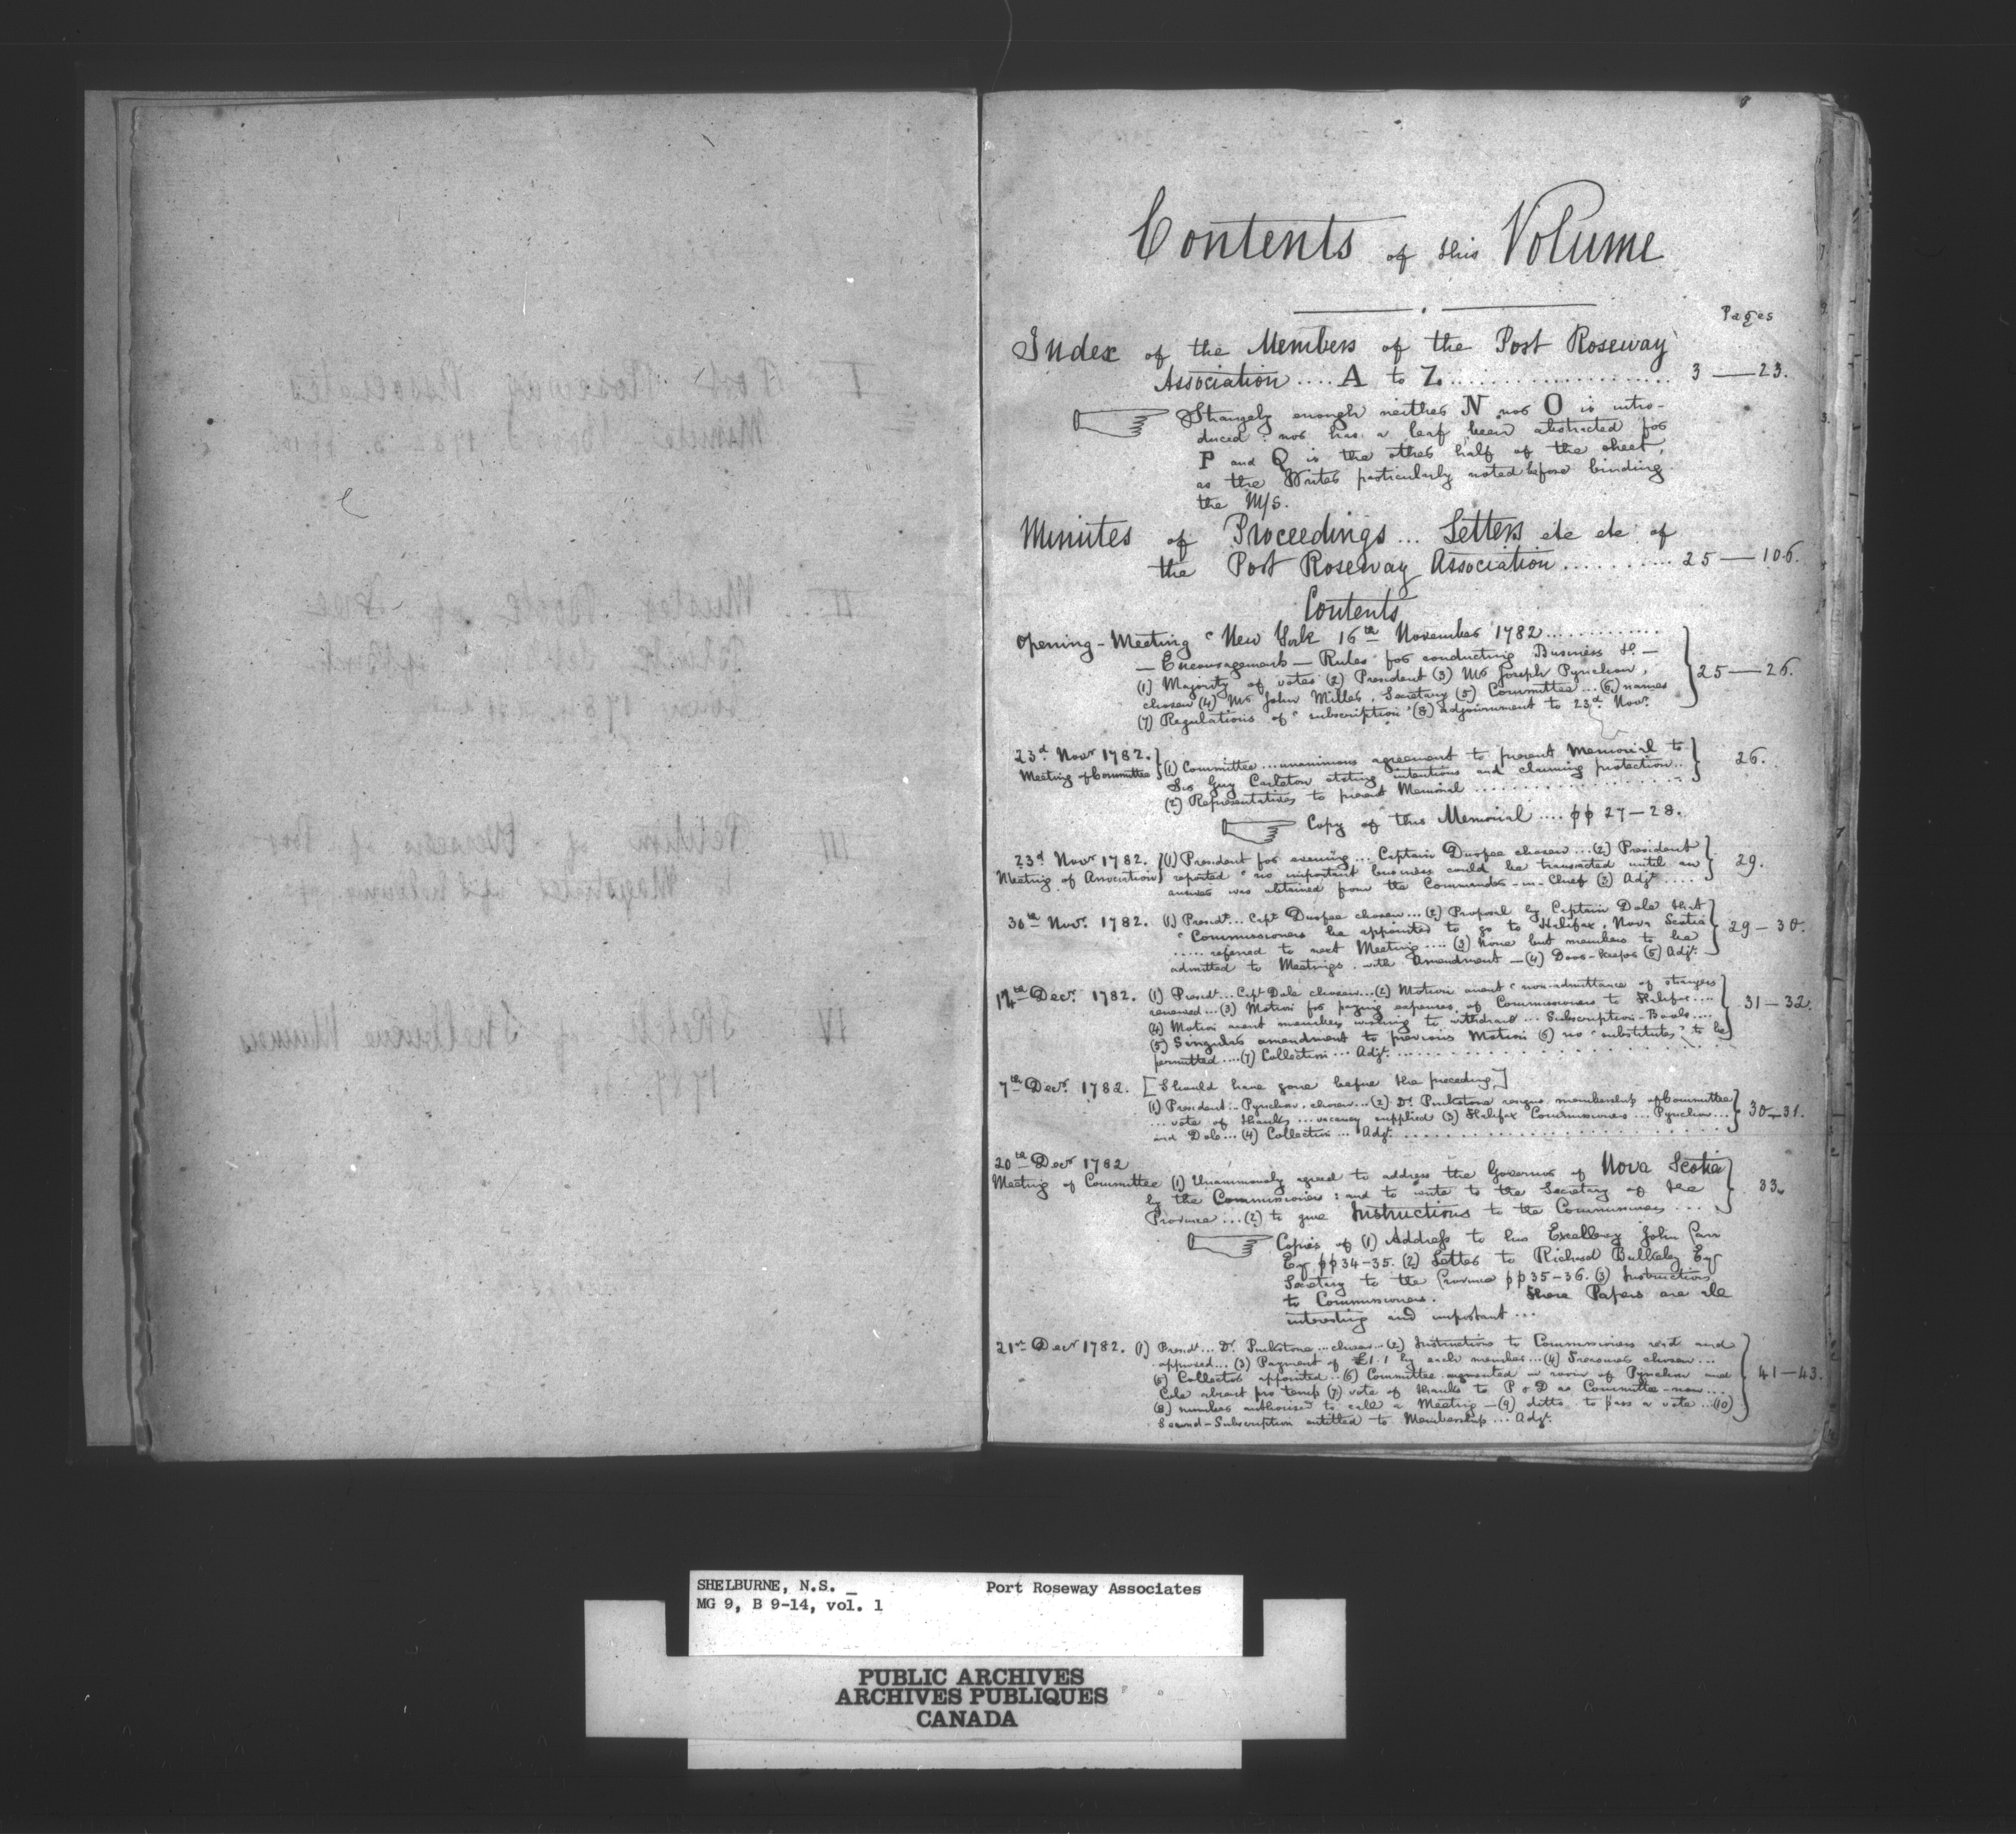 Contents of this Volume
Pages
Index of the Members of the Port Roseway
Association .... A to Z. .................. 3 — 23.
Strangely enough neither N nor O is intro-
duced : nor has a leaf been abstracted for
P and Q is the other half of the sheet,
as the Writer particularly noted before binding
the M/S.
Minutes of Proceedings ... Letters etc etc of
the Port Roseway Association .......... 25 — 106.
Contents
Opening - Meeting "New York 16th November 1782 ............
— Encouragement — Rules for conducting Business &c. —
(1) Majority of votes (2) President (3) Mr Joseph Pynchon,
chosen (4) Mr John Miller, Secretary (5) Committee ... (6) names
(7) Regulations of "subscription" (8) adjournment to 23d Novr.
25 — 26.
23d Novr 1782.
Meeting of Committee
(1) Committee ... unanimous agreement to present Memorial to
Sir Guy Carleton stating intentions and claiming protection ..
(2) Representatives to present Memorial ..................
26.
Copy of this Memorial .... pp 27 — 28.
23d Novr 1782.
Meeting of Association
(1) President for evening ... Captain Durfee chosen ... (2) President
reported "no important business could be transacted until an
answer was obtained from the Commander-in-Chief (3) Adjt ....
29.
30th Novr. 1782. (1) Presidt ... Capt Durfee chosen ... (2) Proposal by Captain Dole that
"Commissioners be appointed to go to Halifax, Nova Scotia
..... referred to next Meeting .... (3) None but members to be
admitted to Meetings, with Amendment — (4) Door-keeper (5) Adjt.
29 — 30.
14th Decr. 1782. (1) Presidt ... Capt Dole chosen ... (2) Motion anent "non-admittance of strangers
renewed ... (3) Motion for paying expenses of Commissioners to Halifax ....
(4) Motion anent members wishing to withdraw ... Subscription-Books ....
(5) Singular amendment to previous Motion (6) no "substitutes" to be
permitted .... (7) Collection ... Adjt. ..................
31 — 32.
7th Decr. 1782. [Should have gone before the preceding]
(1) President .. Pynchon, chosen ... (2) Dr. Pinkstone resigns membership of Committee
... vote of thanks ... vacancy supplied (3) Halifax Commissioners ... Pynchon ...
and Dole ... (4) Collection ... Adjt. ..................
30 — 31.
20th Decr 1782
Meeting of Committee (1) Unanimously agreed to address the Governor of Nova Scotia
by the Commissioners : and to write to the Secretary of the
Province ... (2) to give Instructions to the Commissioners ...
33.
Copies of (1) Address to his Excellency John Parr
Esq pp 34-35. (2) Letter to Richard Bulkeley Esq
Secretary to the Province pp 35-36. (3) Instructions
to Commissioners. These Papers are all
interesting and important ...
21st Decr 1782. (1) Presidt ... Dr. Pinkstone ... chosen ... (2) Instructions to Commissioners read and
approved ... (3) Payment of £1.1 by each member ... (4) Treasurer chosen ...
(5) Collector appointed .. (6) Committee augmented in room of Pynchon and
Cole absent pro temp (7) vote of thanks to P & D as Committee-men ...
(8) number authorised to call a Meeting — (9) ditto to pass a vote ... (10)
Second-Subscription entitled to Membership ... Adjt.
41 — 43.
SHELBURNE, N.S. _ Port Roseway Associates
MG 9, B 9-14, vol. 1
PUBLIC ARCHIVES
ARCHIVES PUBLIQUES
CANADA